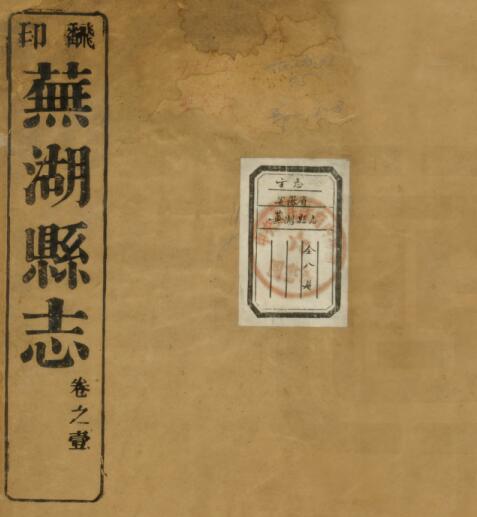 飜印
蕪湖縣志
卷之壹
方志
安徽省
蕪湖縣志
全八册